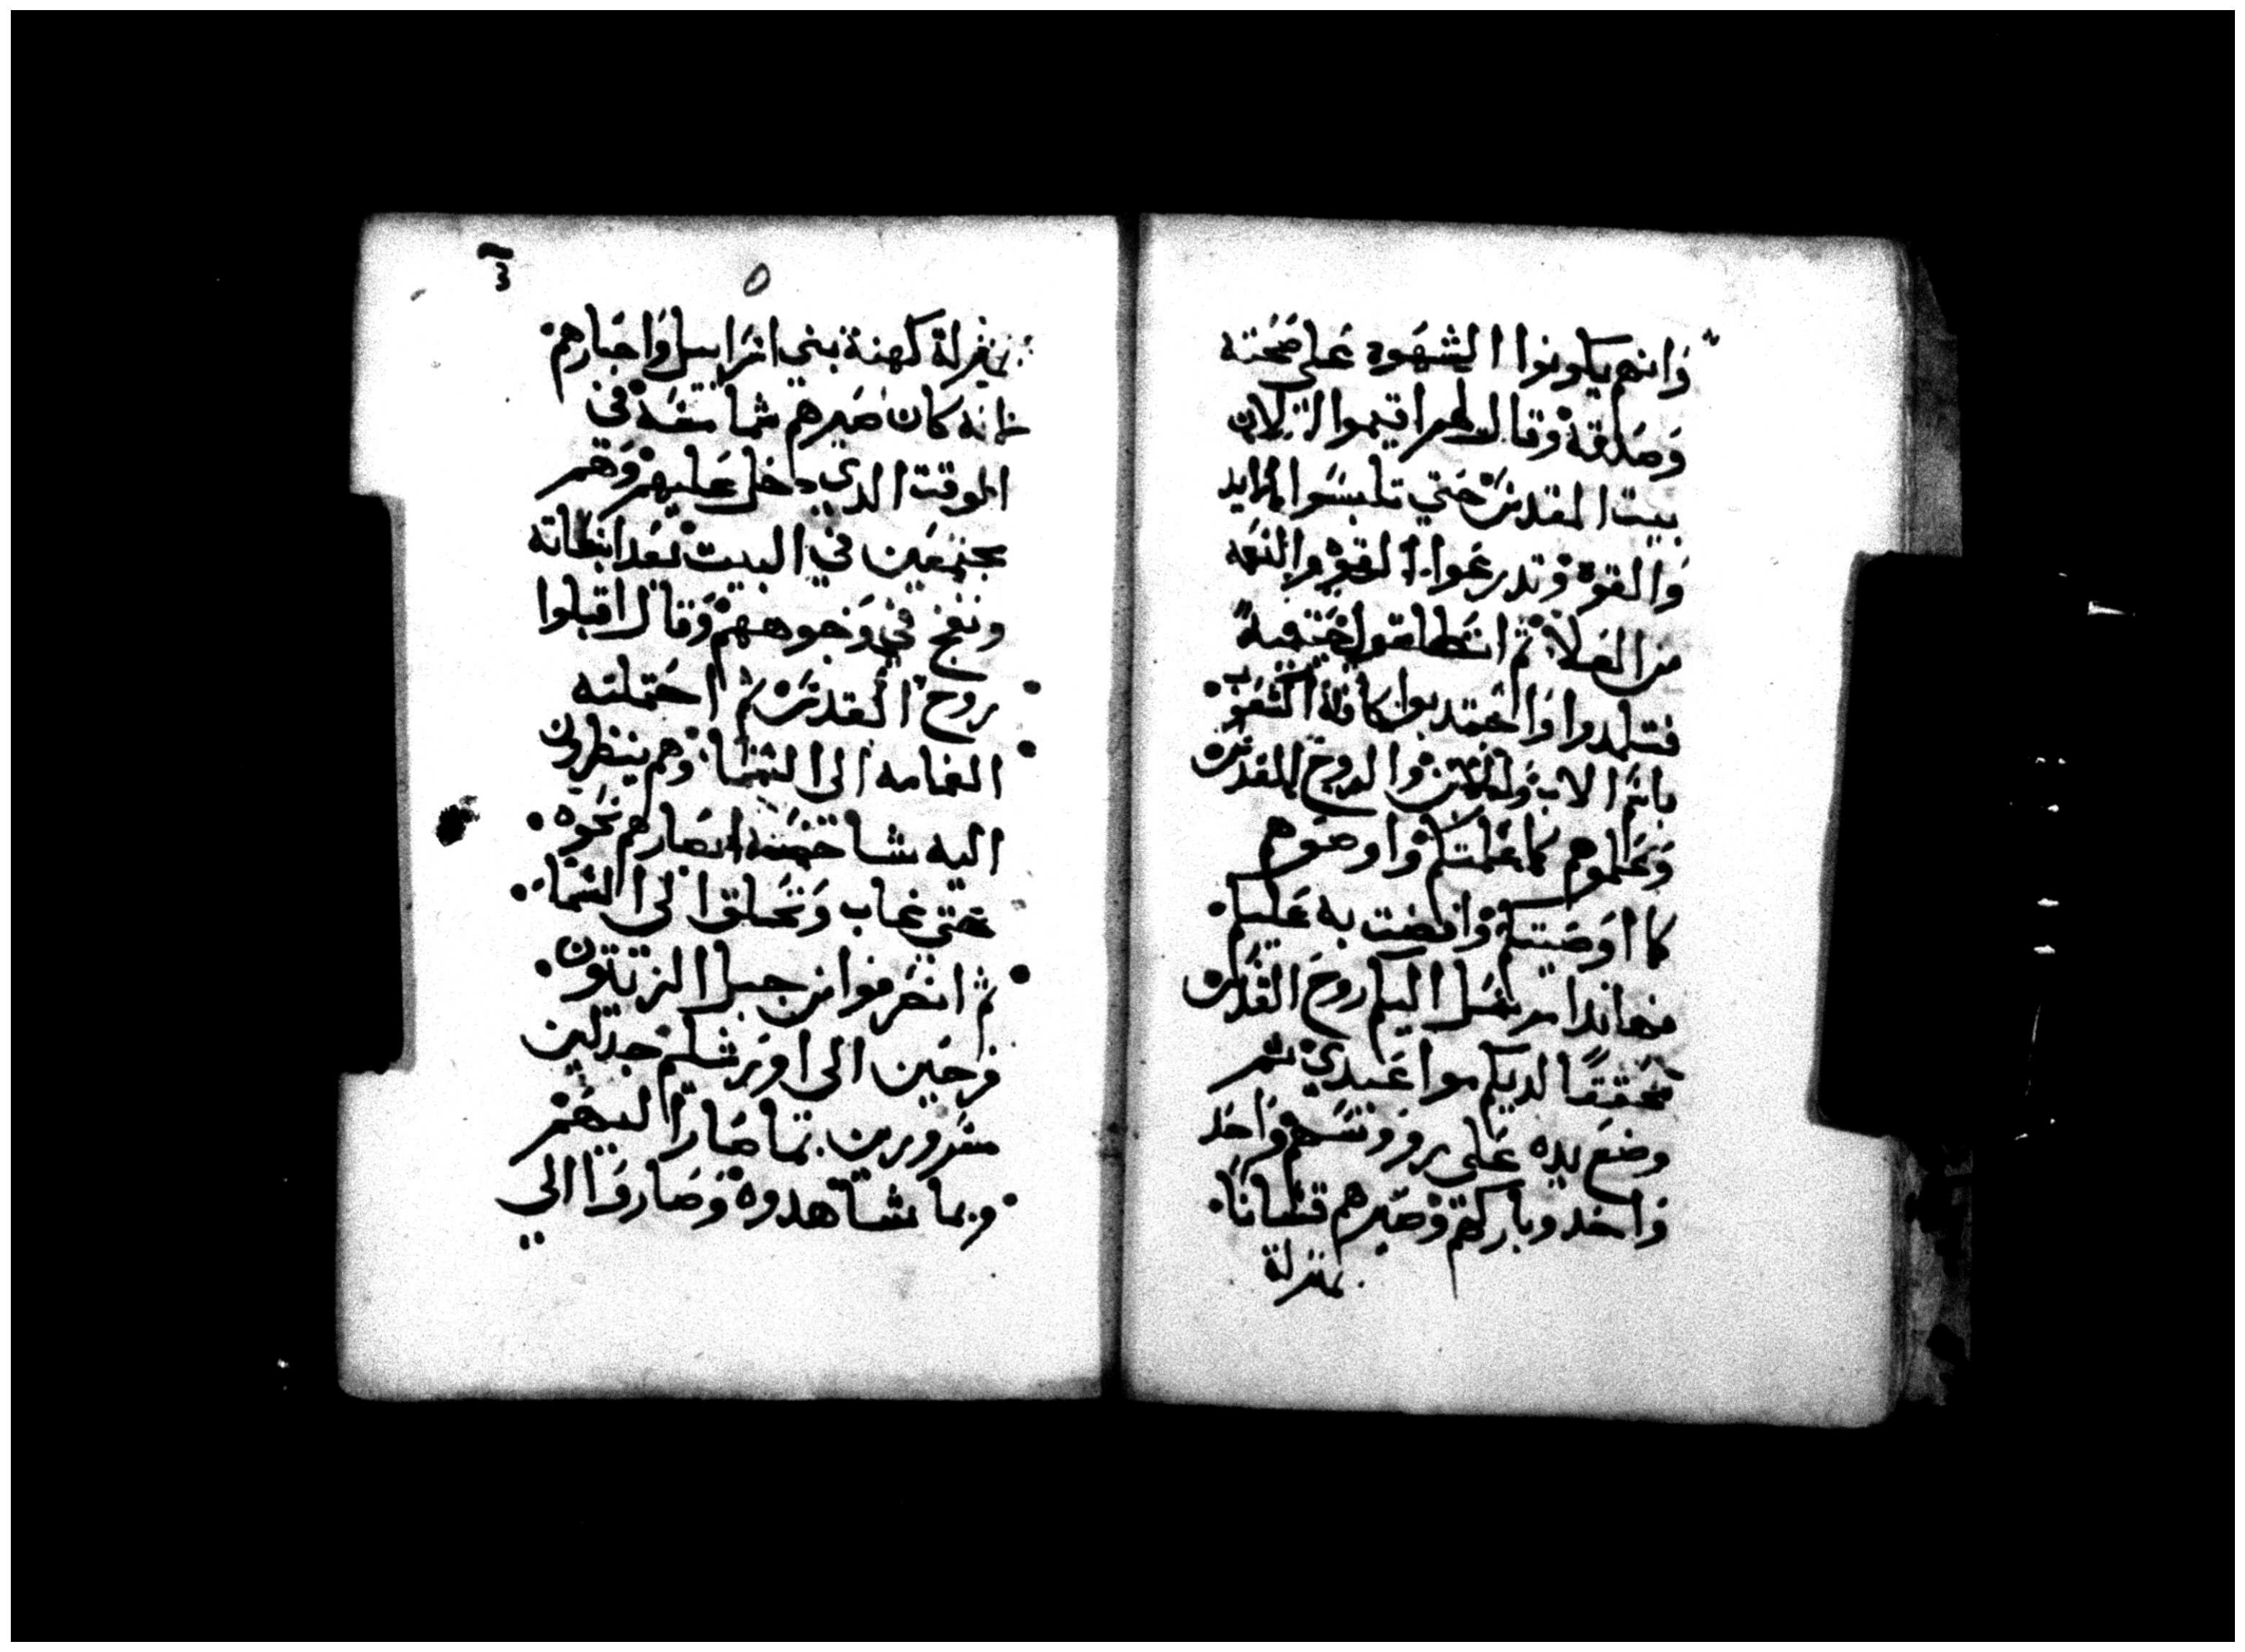 وانهم يكونوا الشهود علي صحته
وصدقه وقال لهم اقيموا الان
بيت المقدس حتي تلبسوا المزايد
والقوة وتدرعوا القوة والنعمه
من العلا ثم انطلقوا
فتلمدوا واعمدوا كافة الشعوب
باسم الاب والابن والروح القدس
وعلموهم كما علمتكم واوصوهم
كما اوصيتكم وافضت به عليكم
فهاندا مرسل اليكم روح القدس
محققا لديكم مواعيدي ثم
وضع يده علي رووسهم واحد
واحد وباركهم وصيرهم قتسانا
بمنزلة
3
٥
بمنزلة كهنة بني اسراييل واحبارهم
فانه كان صيرهم شمامسه في
الوقت الدي دخل عليهم وهم
مجتمعين في البيت بعد انبعاثه
ونفخ في وجوههم وقال اقبلوا
روح القدس ثم احتملته
الغمامه الى السما وهم ينظرون
اليه شاخصه ابصارهم نحوه
حتي غاب وتحلق الى السما
ثم انصرفوا من جبل الزيتون
فرحين الى اورشلم جدلين
مسرورين بما صار اليهم
وبما شاهدوه وصاروا الي